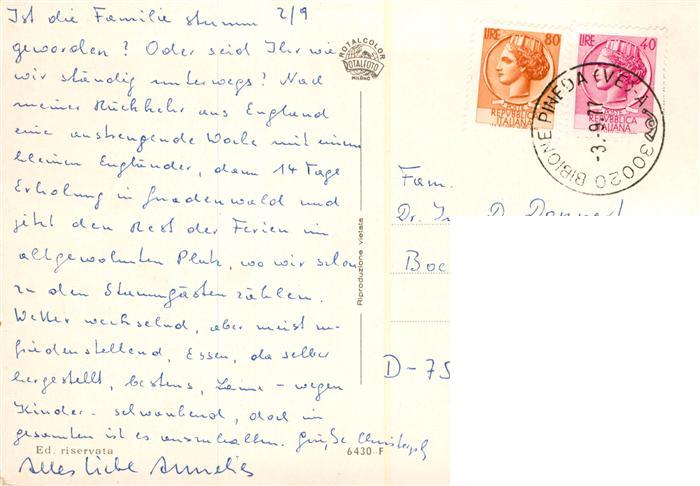 Ist die Familie stumm 2/9
geworden? Oder seid Ihr wie
wir ständig unterwegs? Nach
meiner Rückkehr aus England
eine anstrengende Woche mit einem
kleinen Engländer, dann 14 Tage
Erholung in Gnadenwald und
jetzt den Rest der Ferien im
altgewohnten Platz, wo wir schon
zu den Stammgästen zählen.
Wetter wechselnd, aber meist zu-
friedenstellend, Essen, da selber
hergestellt, bestens, Laune - wegen
Kinder - schwankend, doch im
gesamten ist es auszuhalten. Grüße Christoph
Ed. riservata 6430-F
Alles Liebe Annelies
ROTALCOLOR
ROTALFOTO
MILANO
Riproduzione vietata
LIRE 80
POSTE
REPVBBLICA
ITALIANA
LIRE 40
POSTE
REPVBBLICA
ITALIANA
30020 BIBIONE PINEDA (VE)-A
-3.-9.77
Fam.
Dr.
D-75